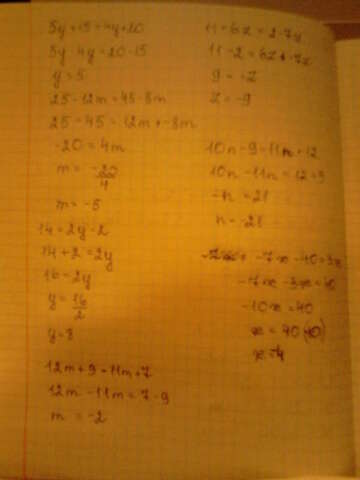 5y+15=4y+20
5y-4y=20-15
y=5
25-12m=45-8m
25-45=12m+-8m
-20=4m
m=
m=-5
14=2y-2
14+2=2y
16=2y
y=16/2
y=8
12m+9=11m+7
12m-11m=7-9
m=-2
11-2=6z+-7z
9=-z
z=-9
10n-9=11n+12
10n-11n=12+9
-n=21
n=-21
-7x-40=3x
-7x-3x=40
-10x=40
x=40:(-10)
x=-4